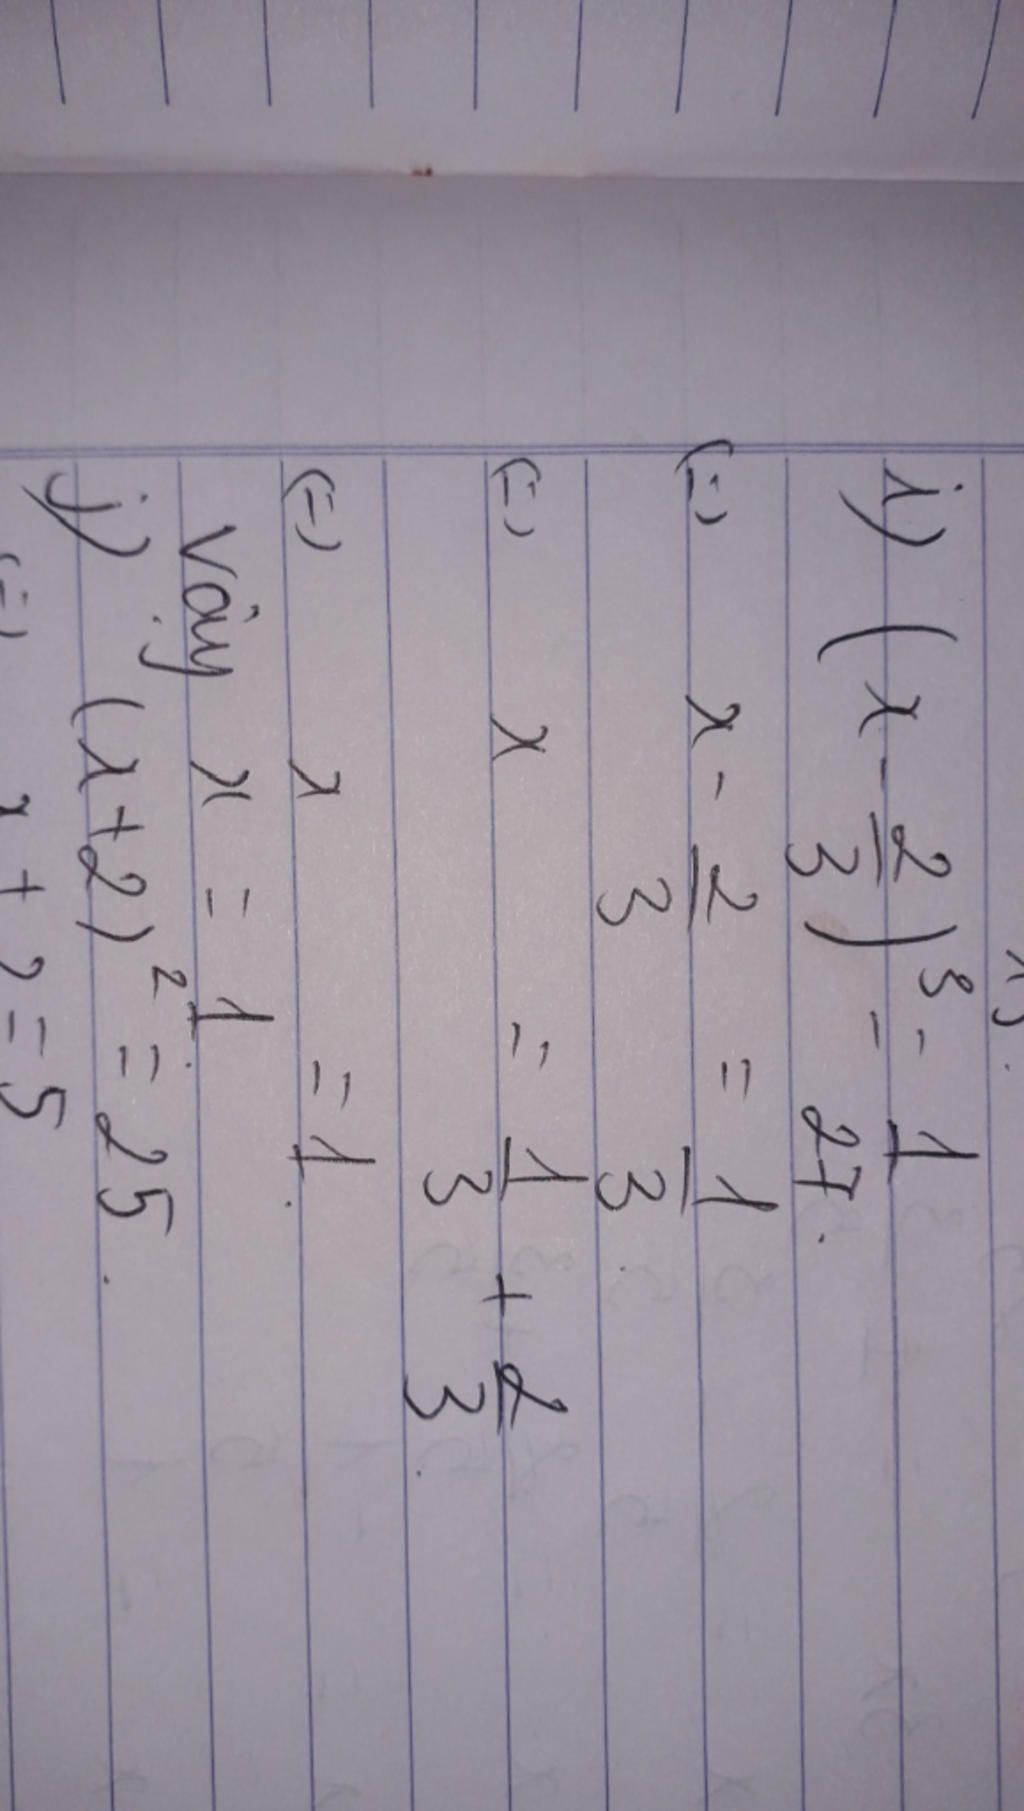 i) (x - 2/3)³ = 1/27.
(=) x - 2/3 = 1/3.
(=) x = 1/3 + 2/3.
(=) x = 1.
Vậy x = 1.
j) (x+2)² = 25.
(=) x + 2 = 5